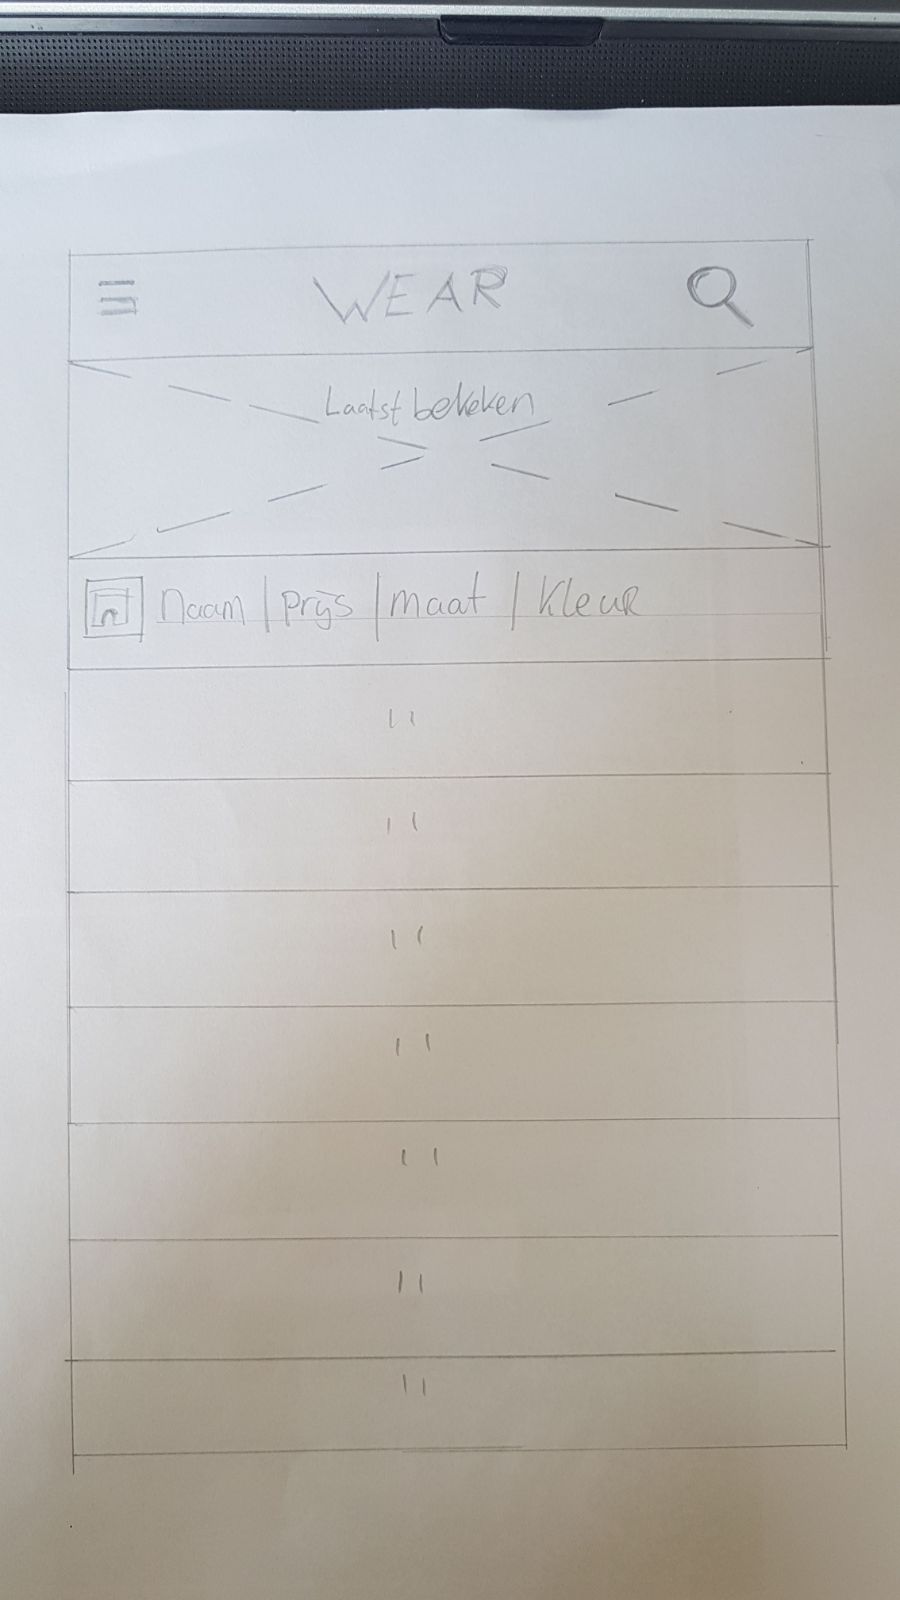 WEAR
Laatst bekeken
Naam | prijs | maat | Kleur
"
"
"
"
"
"
"